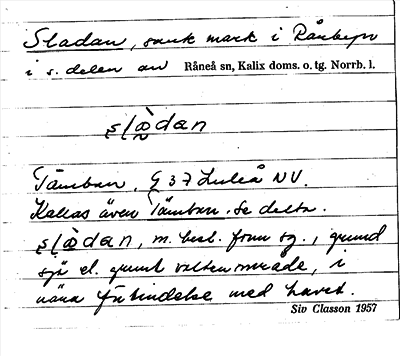 Sladan, sank mark i Rånbyn
i s. delen av Råneå sn, Kalix doms. o. tg. Norrb. l.
ṣlæ̀dan
Tämban, G 37 Luleå NV.
Kallas även Tämban. Se detta.
ṣlæ̀dan, m. best. form sg., grund
sjö el. grunt vattenområde, i
nära förbindelse med havet.
Siv Classon 1957